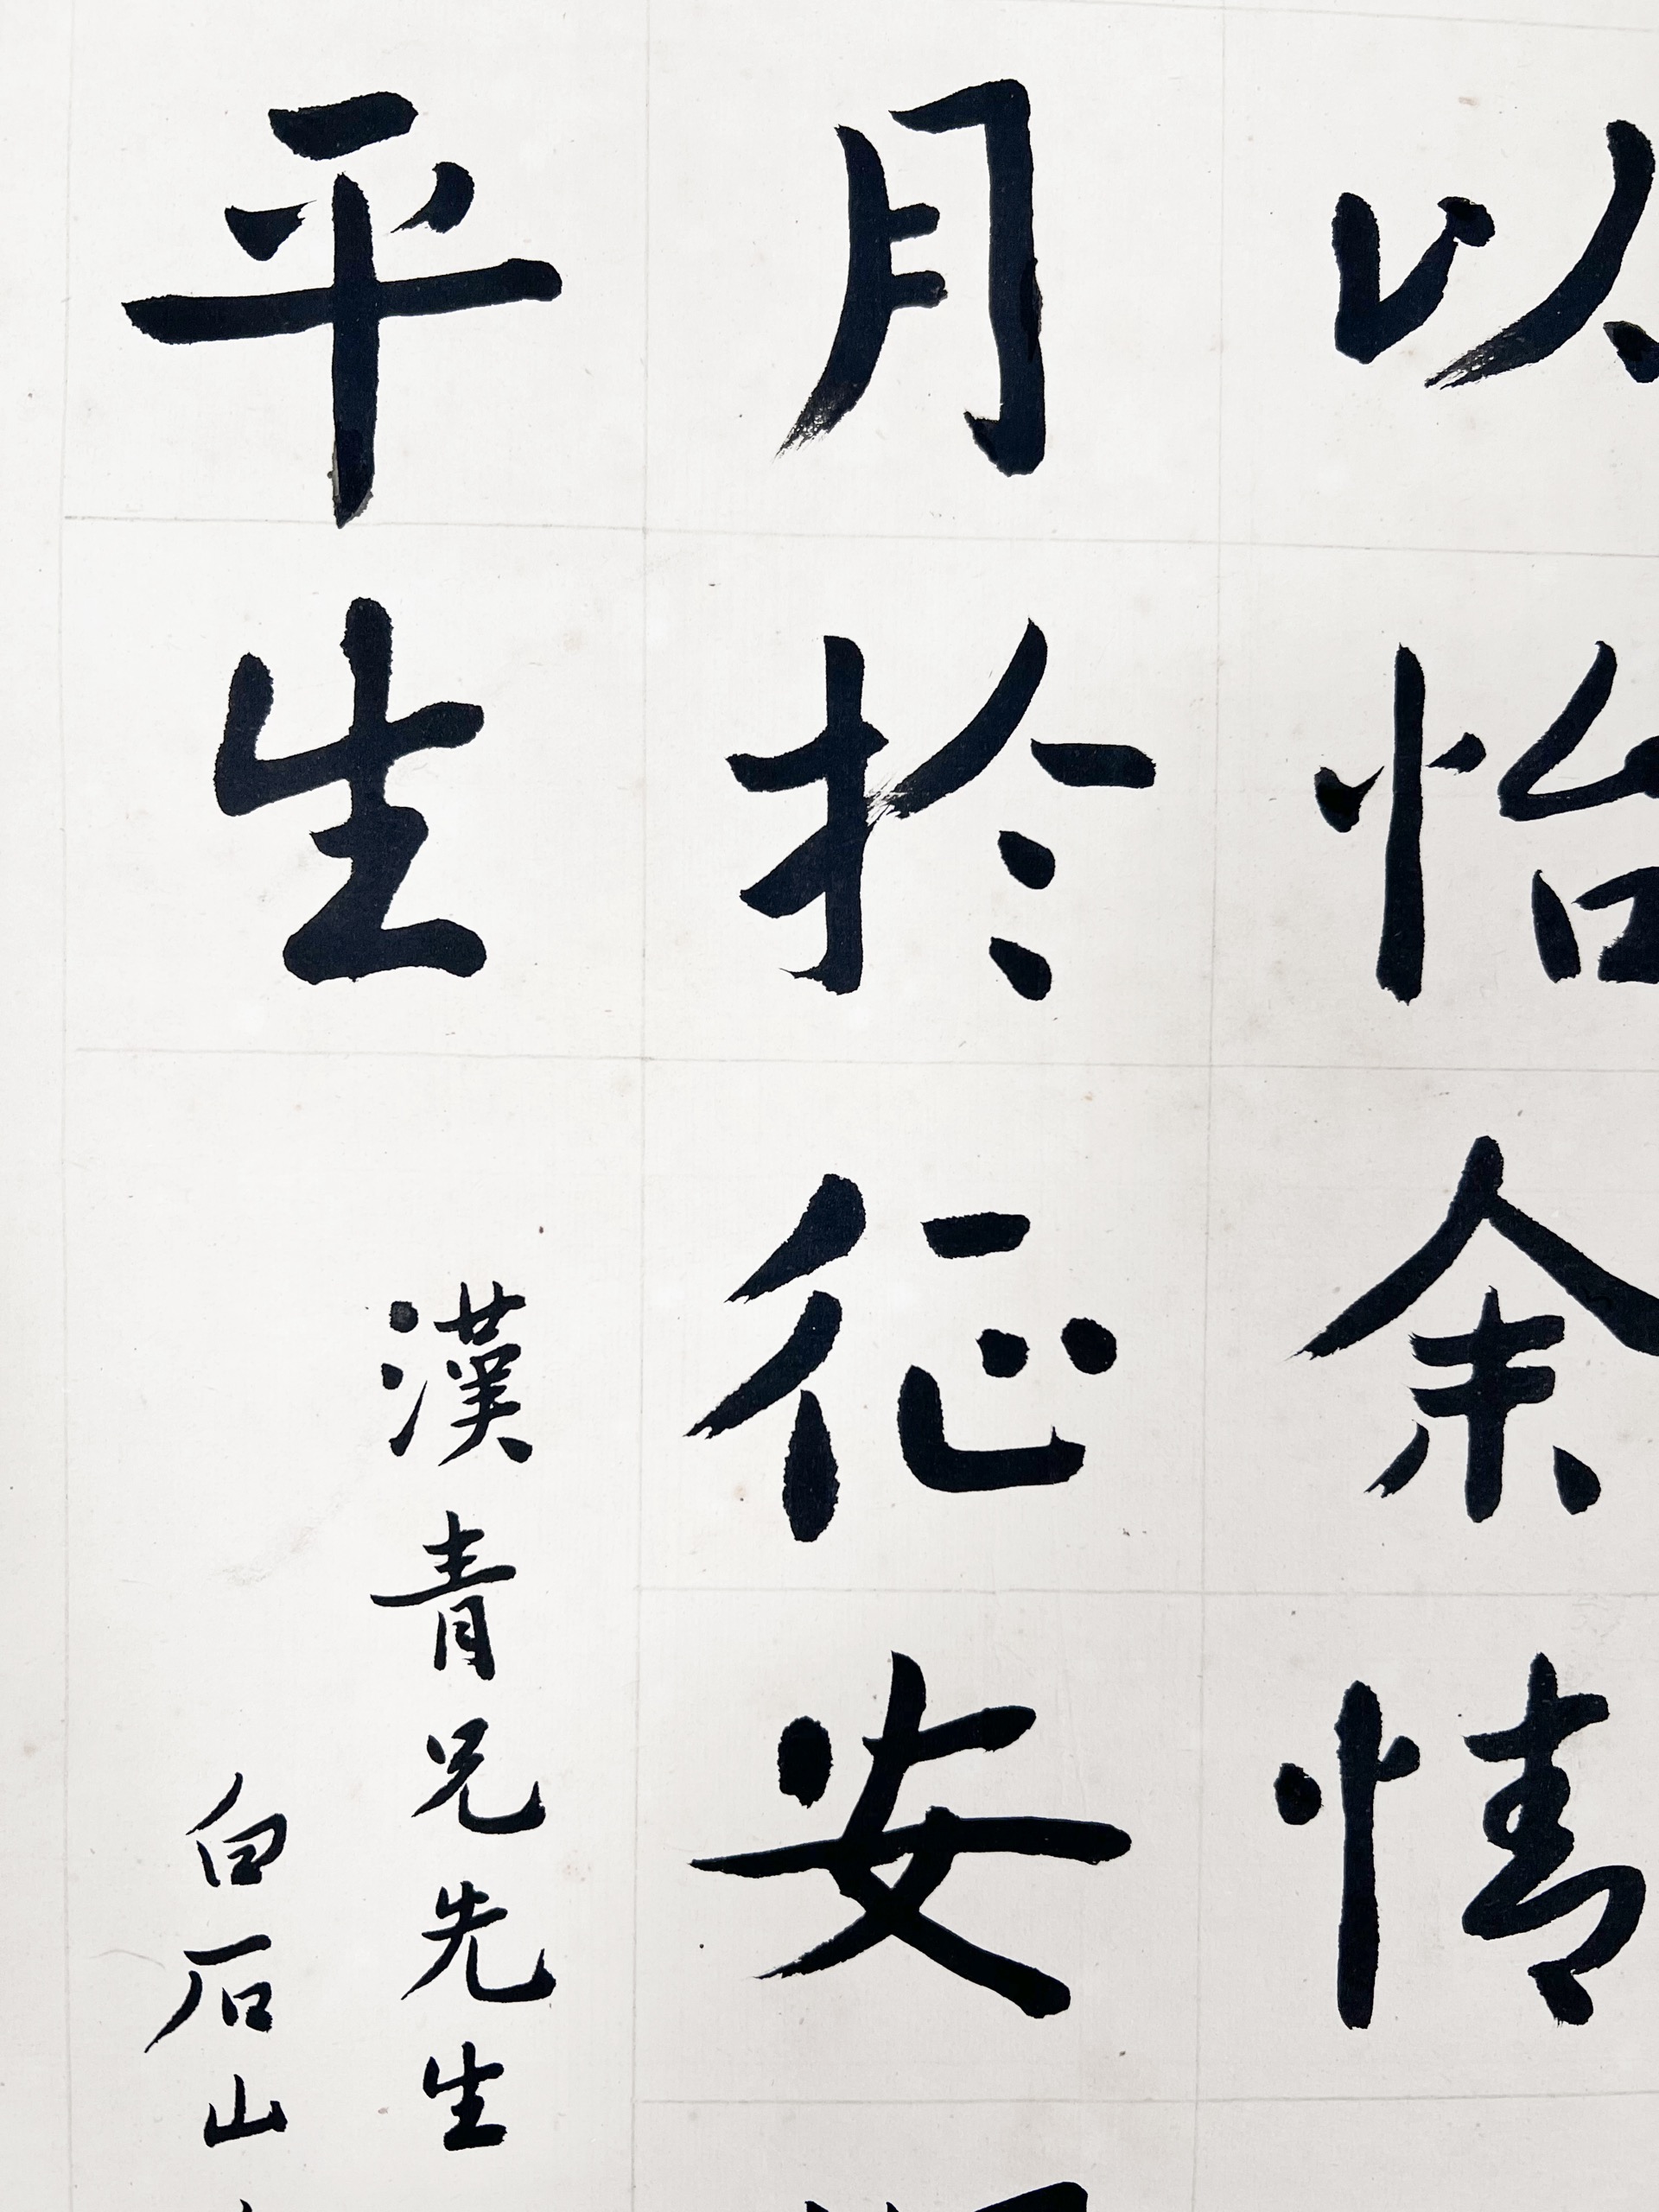 以怡余情
月於征安
平生
漢青兄先生
白石山